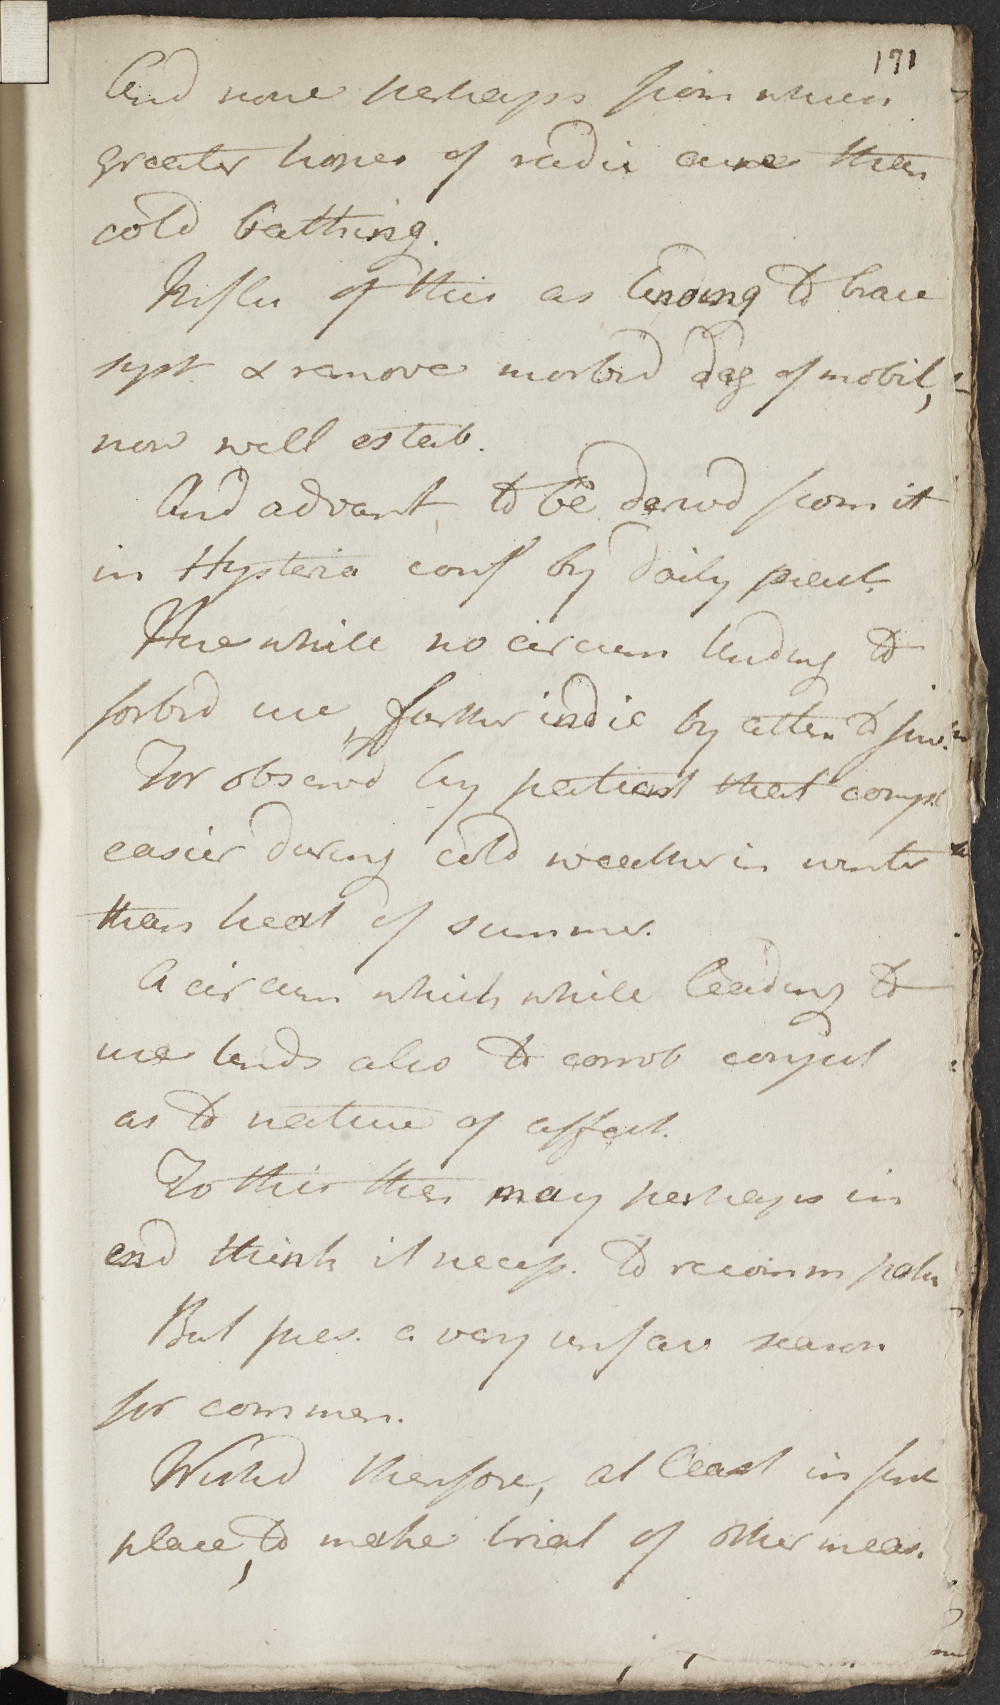 171
And none perhaps from whence
greater hopes of radic cure than
cold bathing.
Influ of this as tending to brace
syst. & remove morbid deg of mobil,
now well estab.
And advant to be derivd from it
in Hysteria conf by daily pract.
Here while no circum tending to
forbid use, further indic by atten to
For observd by patient that compl
easier during cold weather in winter
than heat of summer.
A circum which while leading to
use tends also to corrob conject
as to nature of affect.
To this then may perhaps in
end think it necess. to recomm
But pres. a very unfav season
for commen.
Wishd therefore, at least in first
place, to make trial of other meas.